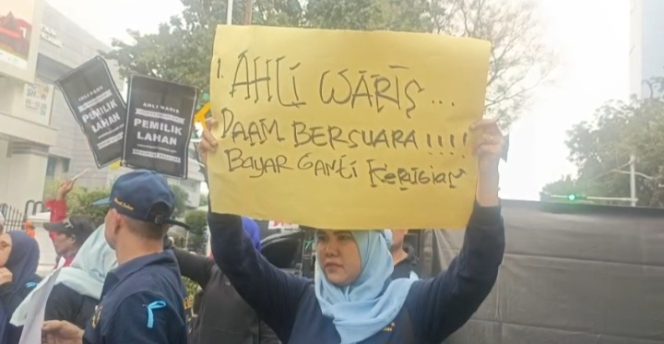 1. AHLI WARIS...
DAAM BERSUARA!!!!
BAYAR GANTI KERUGIAN
AHLI WARIS
PEMILIK
LAHAN
PEMILIK
LAHAN